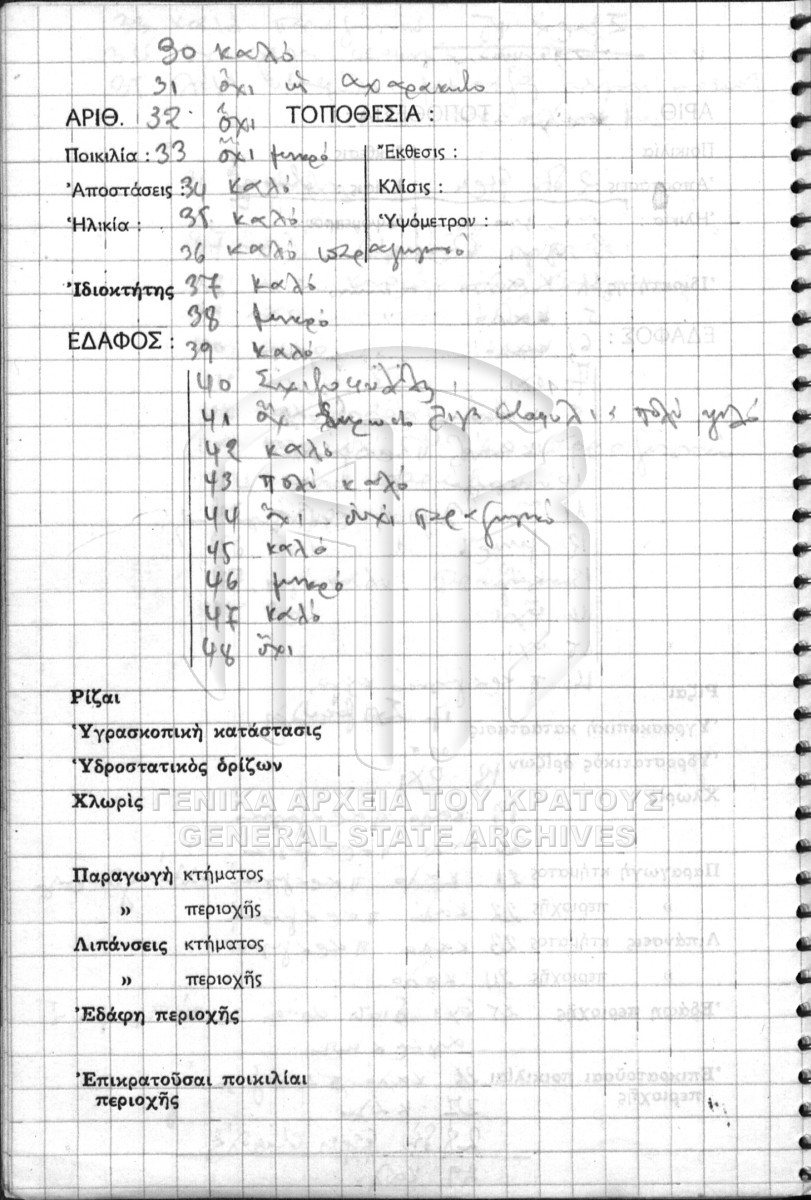 30 καλό
31 ὄχι
ΑΡΙΘ. 32 ὄχι ΤΟΠΟΘΕΣΙΑ :
Ποικιλία : 33 ὄχι μικρό Ἔκθεσις :
Ἀποστάσεις 34 καλό Κλίσις :
Ἡλικία : 35 καλό Ὑψόμετρον :
36 καλό
Ἰδιοκτήτης 37 καλό
38 μικρό
ΕΔΑΦΟΣ : 39 καλό
40
41 ὄχι πολύ
42 καλό
43 πολύ καλό
44 ὄχι
45 καλό
46 μικρό
47 καλό
48 ὄχι
Ρίζαι
Ὑγρασκοπικὴ κατάστασις
Ὑδροστατικὸς ὁρίζων
Χλωρὶς
ΓΕΝΙΚΑ ΑΡΧΕΙΑ ΤΟΥ ΚΡΑΤΟΥΣ
GENERAL STATE ARCHIVES
Παραγωγὴ κτήματος
» περιοχῆς
Λιπάνσεις κτήματος
» περιοχῆς
Ἐδάφη περιοχῆς
Ἐπικρατοῦσαι ποικιλίαι
περιοχῆς